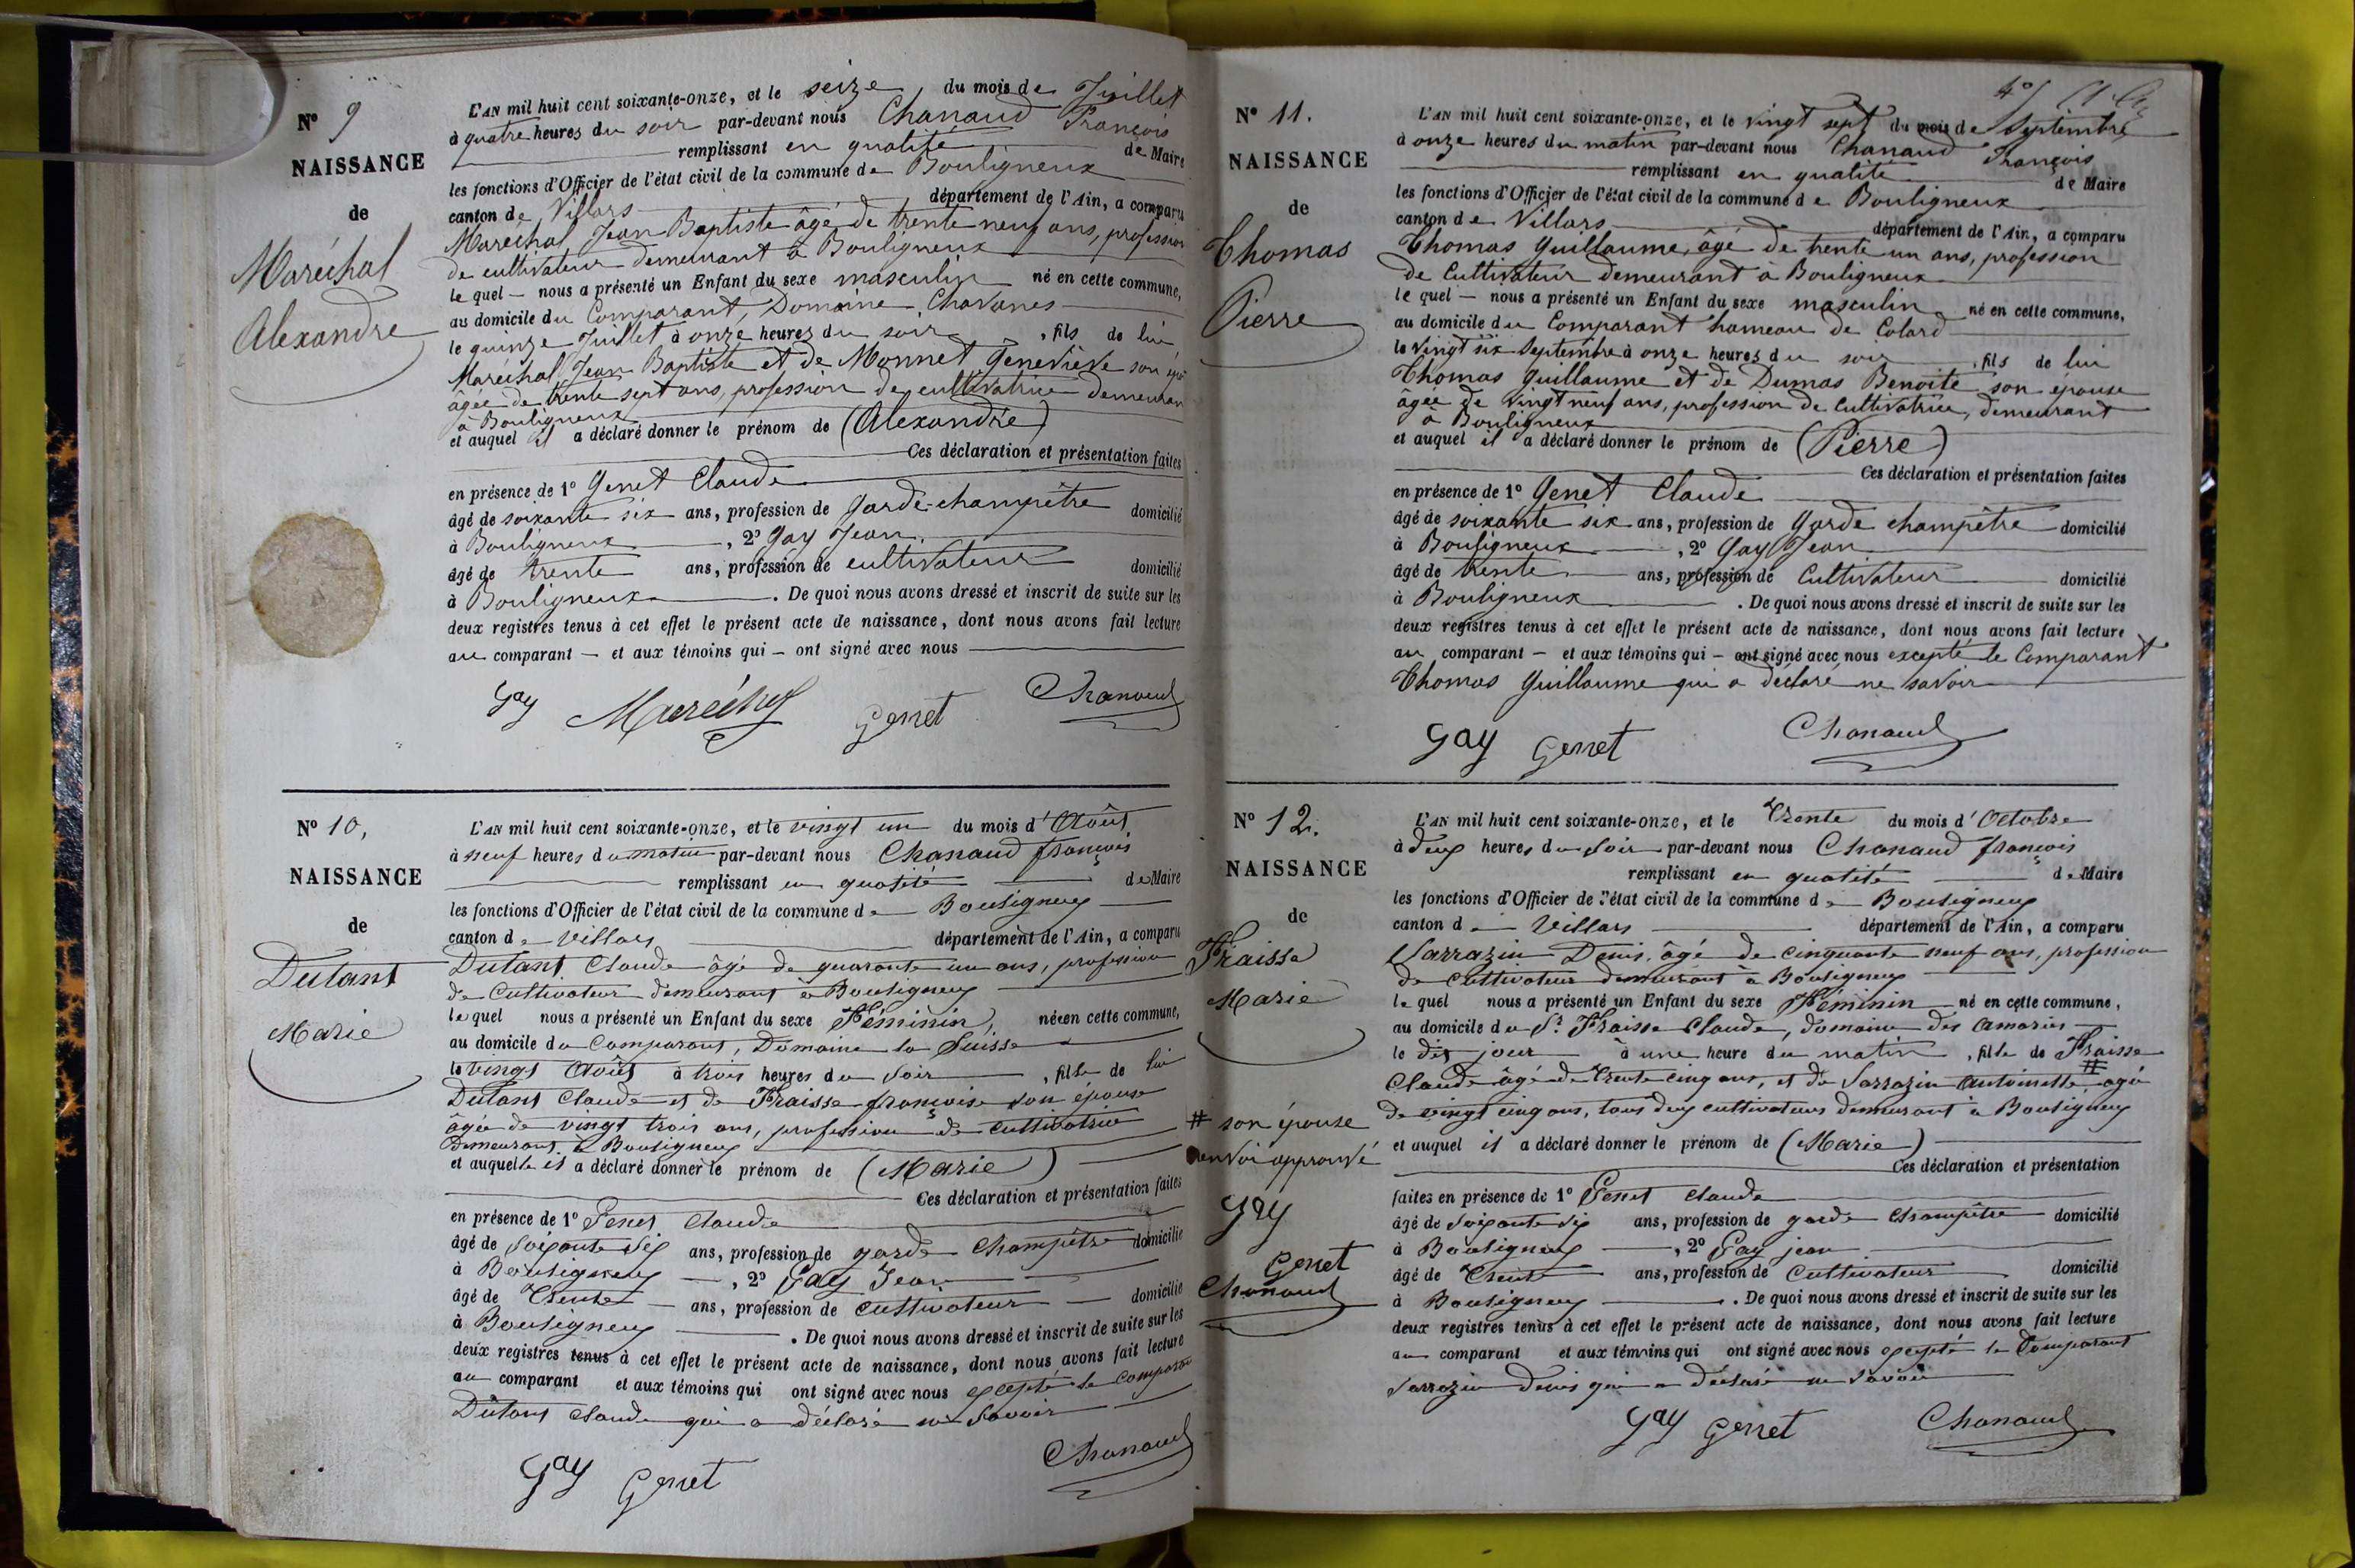 Nº 9
NAISSANCE
de
Maréchal
Alexandre
L'AN mil huit cent soixante-onze, et le seize du mois de Juillet
à quatre heures du soir par-devant nous Chanaud François
remplissant en qualité de Maire
les fonctions d'Officier de l'état civil de la commune de Bouligneux
canton de Villars département de l'Ain, a comparu
Maréchal Jean Baptiste âgé de trente neuf ans, profession
de cultivateur demeurant à Bouligneux
le quel — nous a présenté un Enfant du sexe masculin né en cette commune,
au domicile du Comparant, Domaine Chavanes
le quinze Juillet à onze heures du soir, fils de lui
Maréchal Jean Baptiste et de Monnet Geneviève son
âgée de trente sept ans, profession de cultivatrice demeuran
à Bouligneux
et auquel il a déclaré donner le prénom de (Alexandre)
Ces déclaration et présentation faites
en présence de 1º Genet Claude
âgé de soixante six ans, profession de Garde-champêtre domicilié
à Bouligneux, 2º Gay Jean,
âgé de trente ans, profession de cultivateur domicilié
à Bouligneux. De quoi nous avons dressé et inscrit de suite sur les
deux registres tenus à cet effet le présent acte de naissance, dont nous avons fait lecture
au comparant — et aux témoins qui — ont signé avec nous
Gay Maréchal Genet Chanaud
Nº 10,
NAISSANCE
de
Dutant
Marie
L'AN mil huit cent soixante-onze, et le vingt un du mois d'Août
à neuf heures du matin par-devant nous Chanaud françois
remplissant en qualité de Maire
les fonctions d'Officier de l'état civil de la commune de Bouligneux
canton de Villars département de l'Ain, a comparu
Dutant Claude âgé de quarante un ans, profession
de Cultivateur demeurant à Bouligneux
lequel nous a présenté un Enfant du sexe Féminin, née en cette commune,
au domicile du Comparant, Domaine la Suisse
le vingt Août à trois heures du soir, fille de lui
Dutant Claude et de Fraisse françoise son épouse
âgée de vingt trois ans, profession de cultivatrice
Demeurant à Bouligneux
et auquelle il a déclaré donner le prénom de (Marie)
Ces déclaration et présentation faites
en présence de 1º Genet Claude
âgé de soixante six ans, profession de garde Champêtre domicilié
à Bouligneux —, 2º Gay Jean
âgé de Trente — ans, profession de cultivateur — domicilié
à Bouligneux. De quoi nous avons dressé et inscrit de suite sur les
deux registres tenus à cet effet le présent acte de naissance, dont nous avons fait lecture
au comparant et aux témoins qui ont signé avec nous excepté le Comparant
Dutant Claude qui a déclaré ne Savoir
Gay Genet Chanaud
Nº 11.
NAISSANCE
de
Thomas
Pierre
L'AN mil huit cent soixante-onze, et le vingt sept du mois de Septembre
à onze heures du matin par-devant nous Chanaud François
remplissant en qualité de Maire
les fonctions d'Officier de l'état civil de la commune de Bouligneux
canton de Villars département de l'Ain, a comparu
Thomas Guillaume, âgé de trente un ans, profession
de Cultivateur demeurant à Bouligneux
le quel — nous a présenté un Enfant du sexe masculin né en cette commune,
au domicile du Comparant hameau de Colard
le vingt six Septembre à onze heures du soir, fils de lui
Thomas Guillaume et de Dumas Benoîte son épouse
âgée de vingt neuf ans, profession de Cultivatrice, demeurant
à Bouligneux
et auquel il a déclaré donner le prénom de (Pierre)
Ces déclaration et présentation faites
en présence de 1º Genet Claude
âgé de soixante six ans, profession de Garde champêtre domicilié
à Bouligneux, 2º Gay Jean
âgé de trente ans, profession de Cultivateur domicilié
à Bouligneux. De quoi nous avons dressé et inscrit de suite sur les
deux registres tenus à cet effet le présent acte de naissance, dont nous avons fait lecture
au comparant — et aux témoins qui — ont signé avec nous excepté le Comparant
Thomas Guillaume qui a déclaré ne savoir
Gay Genet Chanaud
Nº 12.
NAISSANCE
de
Fraisse
Marie
# son épouse
renvoi approuvé
Gay
Genet
Chanaud
L'AN mil huit cent soixante-onze, et le Trente du mois d'Octobre
à deux heures du soir par-devant nous Chanaud françois
remplissant en qualité de Maire
les fonctions d'Officier de l'état civil de la commune de Bouligneux
canton de Villars département de l'Ain, a comparu
Sarrazin Denis, âgé de cinquante neuf ans, profession
de cultivateur demeurant à Bouligneux
le quel nous a présenté un Enfant du sexe Féminin né en cette commune,
au domicile du Sr Fraisse Claude, domaine des
le dix jour à une heure du matin, fille de Fraisse
Claude âgé de Trente cinq ans, et de Sarrazin Antoinette # agée
de vingt cinq ans, tous deux cultivateurs demeurant à Bouligneux
et auquel il a déclaré donner le prénom de (Marie)
Ces déclaration et présentation
faites en présence de 1º Genet Claude
âgé de soixante six ans, profession de garde champêtre domicilié
à Bouligneux —, 2º Gay jean
âgé de Trente ans, profession de Cultivateur domicilié
à Bouligneux. De quoi nous avons dressé et inscrit de suite sur les
deux registres tenus à cet effet le présent acte de naissance, dont nous avons fait lecture
au comparant et aux témoins qui ont signé avec nous excepté le Comparant
Sarrazin Denis qui a déclaré ne Savoir
Gay Genet Chanaud